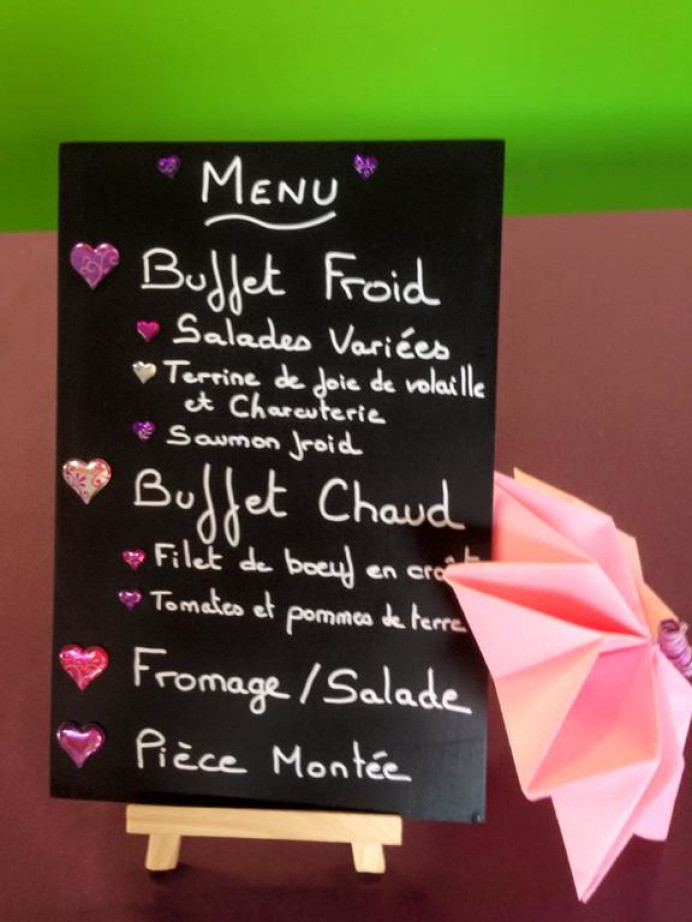 MENU
Buffet Froid
Salades Variées
Terrine de foie de volaille
et Charcuterie
Saumon froid
Buffet Chaud
Filet de boeuf en
Tomates et pommes de terre
Fromage / Salade
Pièce Montée